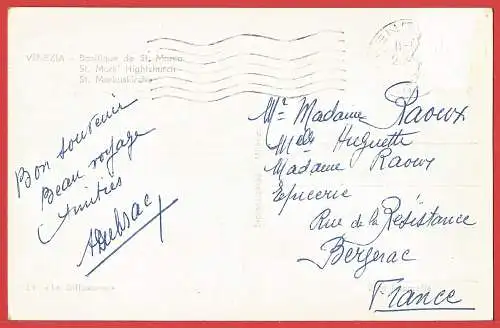 VENEZIA - Basilique de St. Marco
St. Mark' Hightchurch
St. Markuskirche
Bon souvenir
Beau voyage
Amitiés
ADubrac
Mr Madame Raoux
Melle Huguette
Madame Raoux
Epicerie
Rue de la Résistance
Bergerac
France